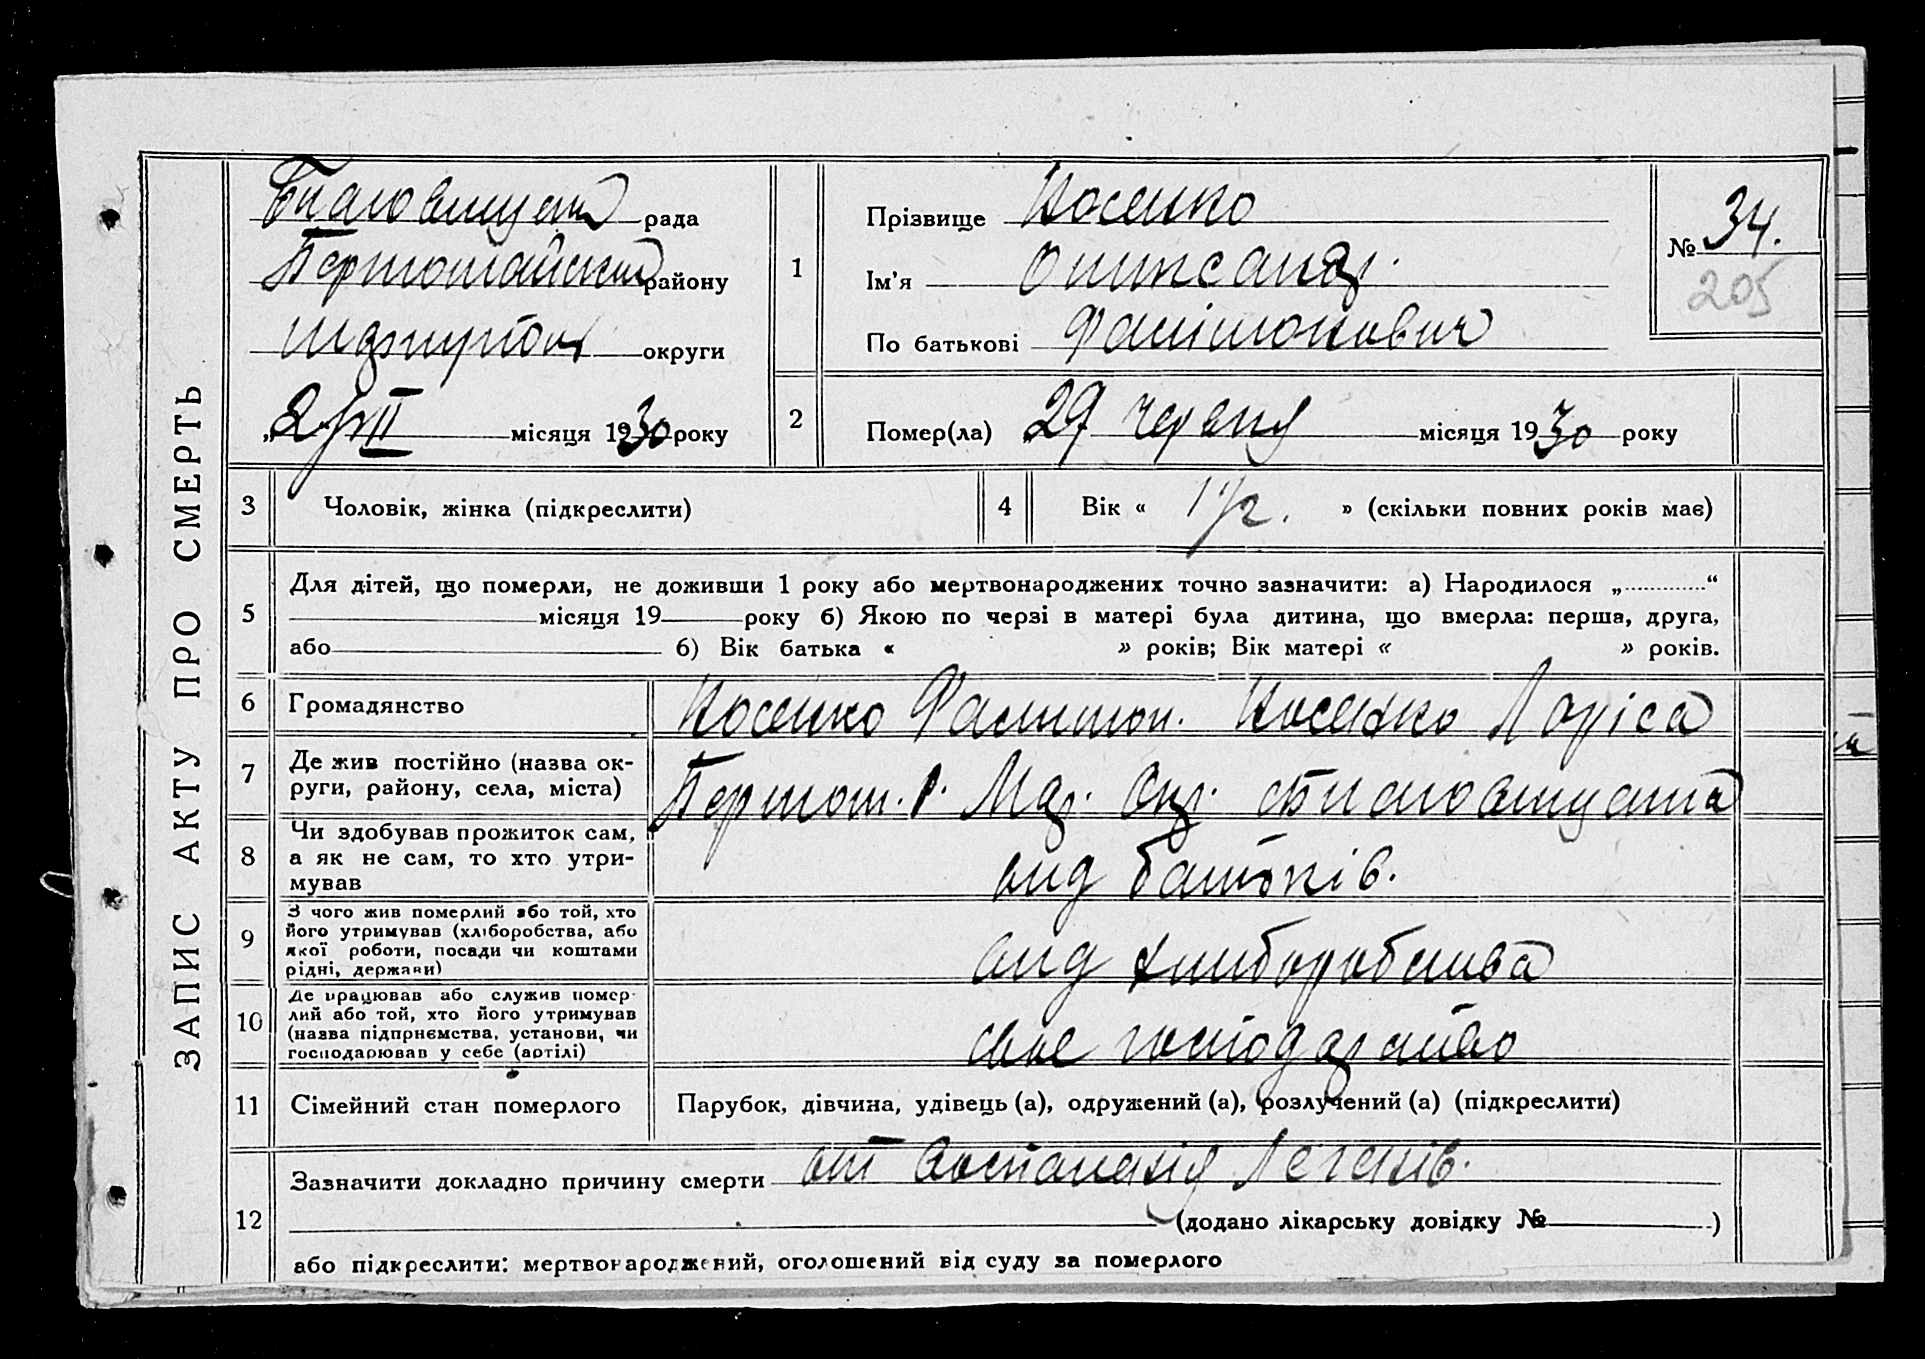 ЗАПИС АКТУ ПРО СМЕРТЬ
рада
району
округи
місяця 1930 року
1
Прізвище Носенко
Ім'я Олександр.
По батькові
№ 34.
205
2
Помер(ла) 27 червня місяця 1930 року
3
Чоловік, жінка (підкреслити)
4
Вік « 1 1/2. » (скільки повних років має)
5
Для дітей, що померли, не доживши 1 року або мертвонароджених точно зазначити: а) Народилося „ “
місяця 19 року б) Якою по черзі в матері була дитина, що вмерла: перша, друга,
або б) Вік батька « » років; Вік матері « » років.
6
Громадянство
Носенко Носенко Лоріса
7
Де жив постійно (назва ок-
руги, району, села, міста)
8
Чи здобував прожиток сам,
а як не сам, то хто утри-
мував
вид батьків.
9
З чого жив померлий або той, хто
його утримував (хліборобства, або
якої роботи, посади чи коштами
рідні, держави)
вид хлиборобства
10
Де працював або служив помер-
лий або той, хто його утримував
(назва підприємства, установи, чи
господарював у себе (артілі)
свое господарство
11
Сімейний стан померлого
Парубок, дівчина, удівець (а), одружений (а), розлучений (а) (підкреслити)
12
Зазначити докладно причину смерти
(додано лікарську довідку № )
або підкреслити: мертвонароджений, оголошений від суду за померлого